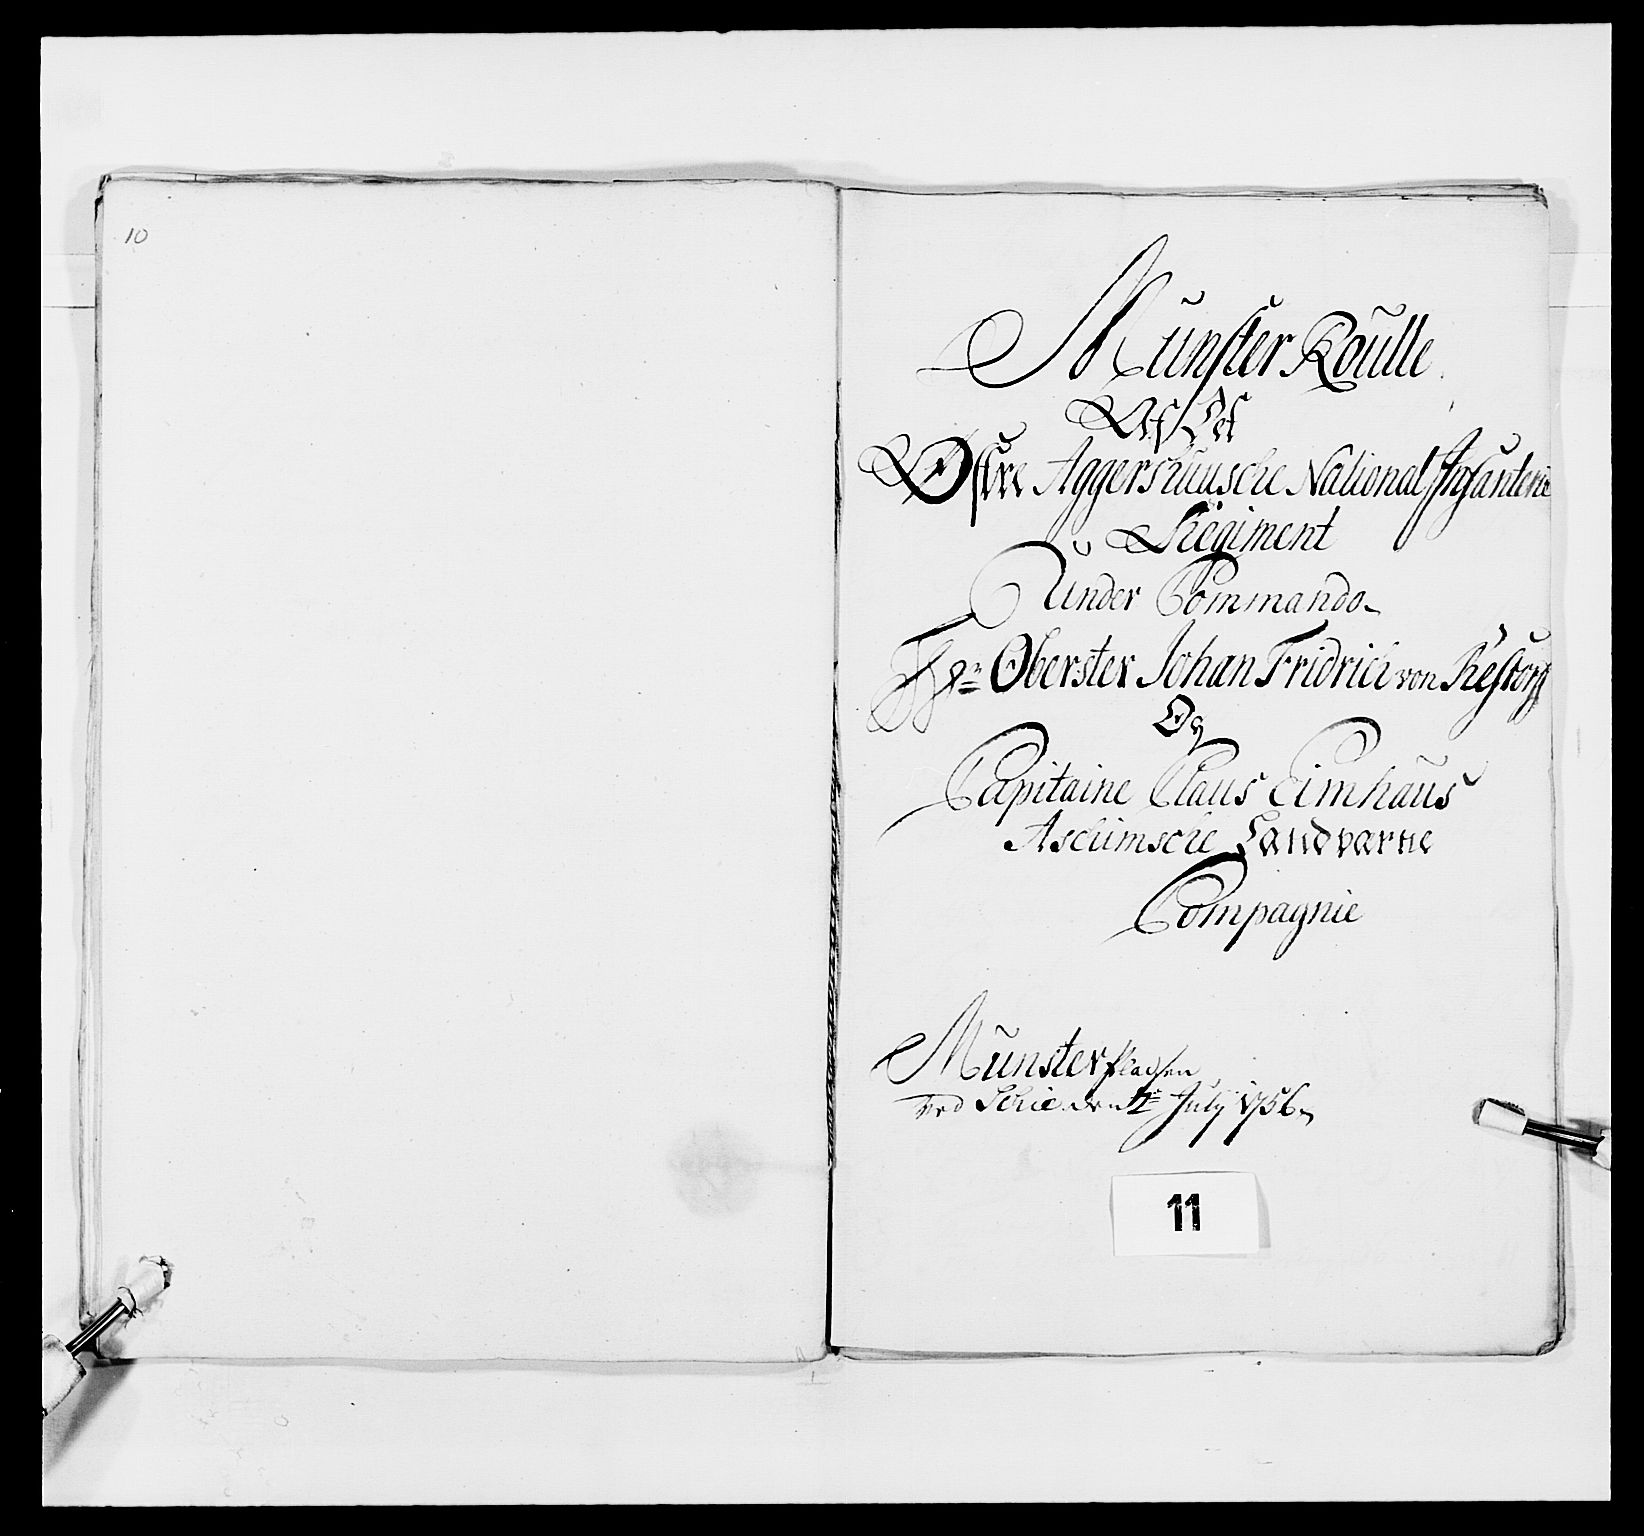 10
Munster Roulle
Af Det
Østre Aggershuusche National Infanterie
Regiment
Under Commando
Hr Oberster Johan Fridrich von Restorff
Og
Capitaine Claus Eimhaus
Aschimsche Landværne
Compagnie
Munster pladsen
ved Schie den July 1756
11